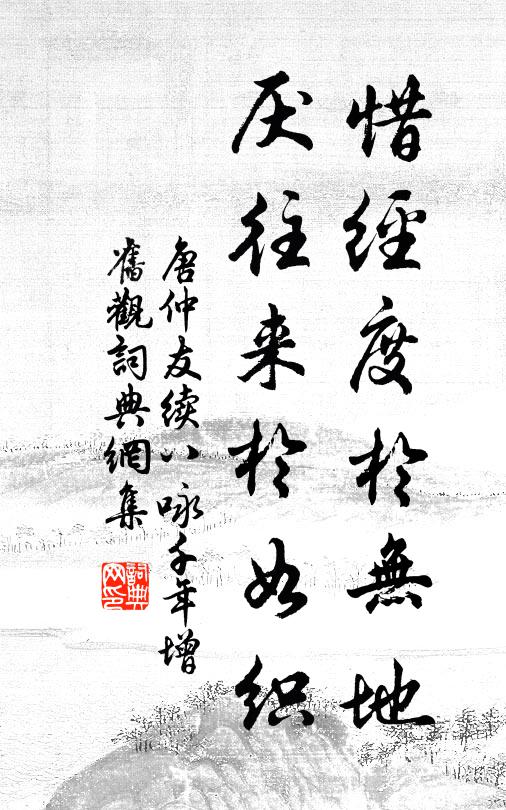 惜經度於無地
厌往来於如织
唐仲友续八咏千年增
舊觀詞典網集
詞典
网印